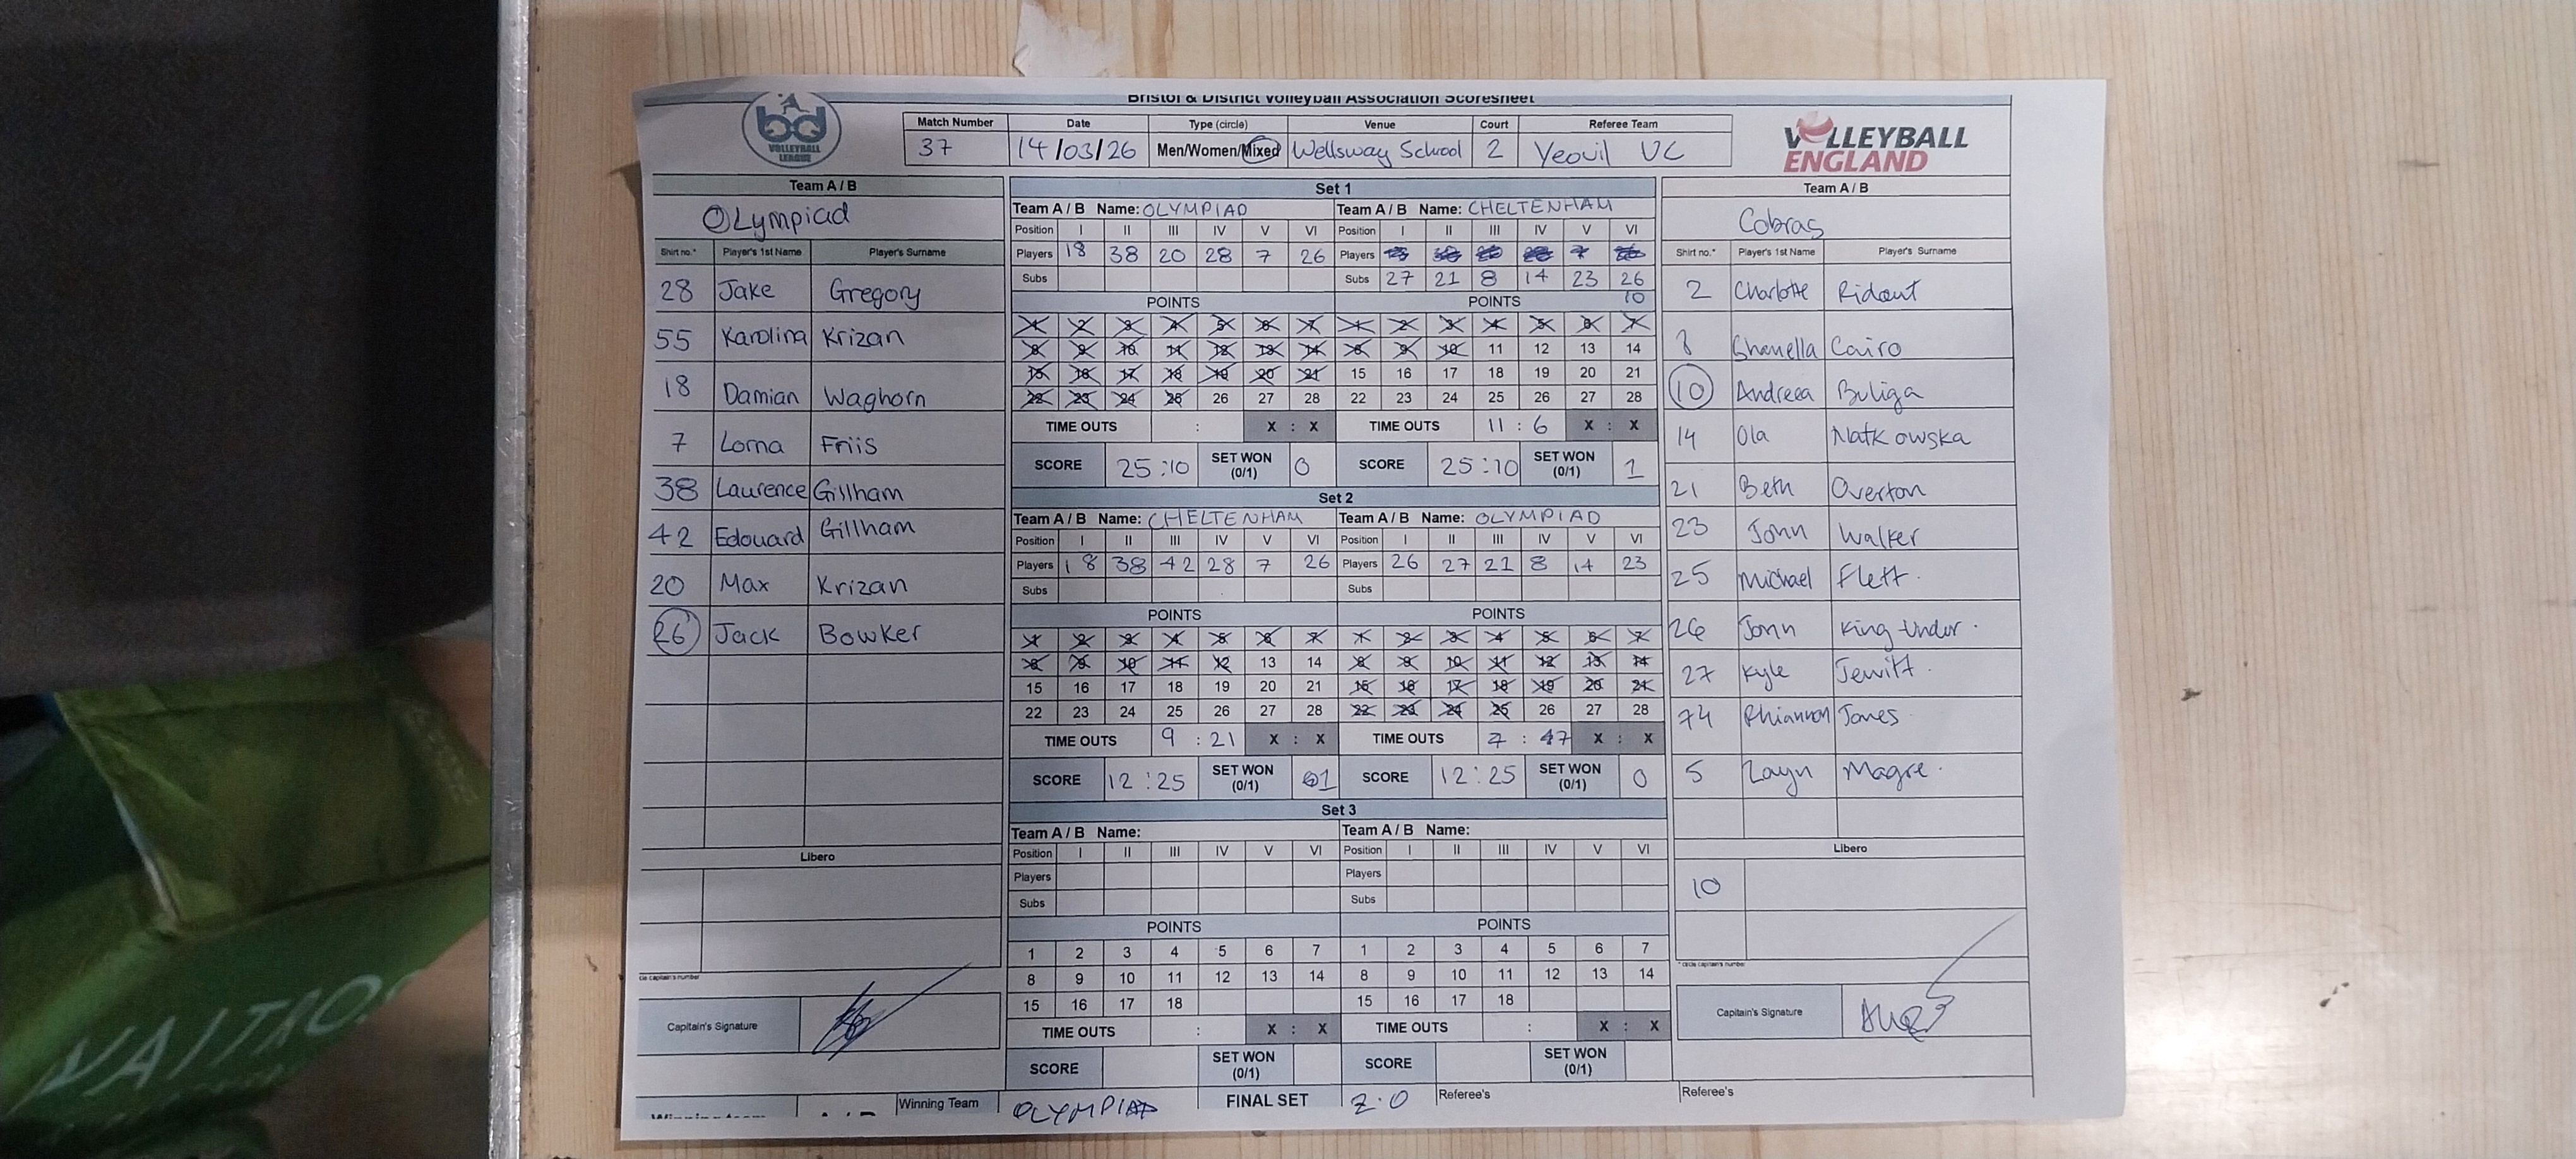 Bristol & District Volleyball Association Scoresheet
bd
VOLLEYBALL
LEAGUE
Match Number Date Type (circle) Venue Court Referee Team
37 14/03/26 Men/Women/Mixed Wellsway School 2 Yeovil VC
VOLLEYBALL
ENGLAND
Team A / B
Olympiad
Shirt no.* Player's 1st Name Player's Surname
28 Jake Gregory
55 Karolina Krizan
18 Damian Waghorn
7 Lorna Friis
38 Laurence Gillham
42 Edouard Gillham
20 Max Krizan
26 Jack Bowker
Libero
Capitain's Signature
Set 1
Team A / B Name: OLYMPIAD Team A / B Name: CHELTENHAM
Position I II III IV V VI Position I II III IV V VI
Players 18 38 20 28 7 26 Players
Subs Subs 27 21 8 14 23 26
POINTS POINTS 10
1 2 3 4 5 6 7 1 2 3 4 5 6 7
8 9 10 11 12 13 14 8 9 10 11 12 13 14
15 16 17 18 19 20 21 15 16 17 18 19 20 21
22 23 24 25 26 27 28 22 23 24 25 26 27 28
TIME OUTS : X : X TIME OUTS 11 : 6 X : X
SCORE 25:10 SET WON (0/1) 0 SCORE 25:10 SET WON (0/1) 1
Set 2
Team A / B Name: CHELTENHAM Team A / B Name: OLYMPIAD
Position I II III IV V VI Position I II III IV V VI
Players 18 38 42 28 7 26 Players 26 27 21 8 14 23
Subs Subs
POINTS POINTS
1 2 3 4 5 6 7 1 2 3 4 5 6 7
8 9 10 11 12 13 14 8 9 10 11 12 13 14
15 16 17 18 19 20 21 15 16 17 18 19 20 21
22 23 24 25 26 27 28 22 23 24 25 26 27 28
TIME OUTS 9 : 21 X : X TIME OUTS : 47 X : X
SCORE 12:25 SET WON (0/1) 1 SCORE 12:25 SET WON (0/1) 0
Set 3
Team A / B Name: Team A / B Name:
Position I II III IV V VI Position I II III IV V VI
Players Players
Subs Subs
POINTS POINTS
1 2 3 4 5 6 7 1 2 3 4 5 6 7
8 9 10 11 12 13 14 8 9 10 11 12 13 14
15 16 17 18 15 16 17 18
TIME OUTS : X : X TIME OUTS : X : X
SCORE SET WON (0/1) SCORE SET WON (0/1)
Winning Team OLYMPIAD FINAL SET 2.0 Referee's Referee's
Team A / B
Cobras
Shirt no.* Player's 1st Name Player's Surname
2 Charlotte Ridout
8 Shanella Cairo
10 Andreea Buliga
14 Ola Natkowska
21 Beth Overton
23 John Walker
25 Michael Flett.
26 John King-Under.
27 Kyle Jewitt.
74 Rhiannon Jones
5 Zayn Magre.
Libero
10
* circle captain's number
Capitain's Signature
WAITRO